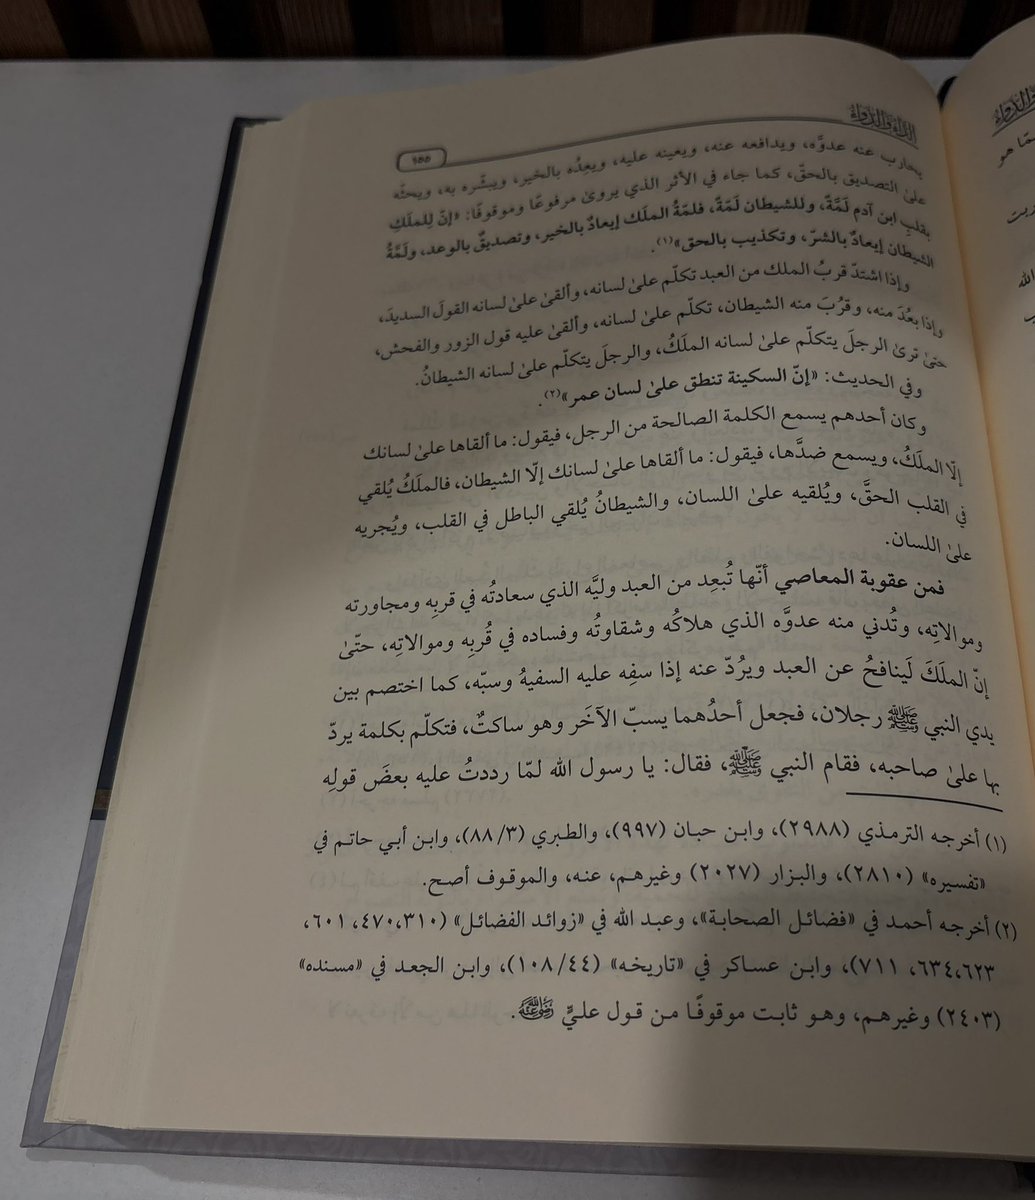 الداء والدواء
١٥٥
يحارب عنه عدوَّه، ويدافعه عنه، ويعينه عليه، ويعِدُه بالخير، ويبشّره به، ويحثّه
علىٰ التصديق بالحقّ، كما جاء في الأثر الذي يروىٰ مرفوعًا وموقوفًا: «إنّ لِلملَكِ
بقلبِ ابنِ آدم لَمَّةً، وللشيطان لَمّةً، فلمّةُ الملَك إيعادٌ بالخير، وتصديقٌ بالوعد، ولَمَّةُ
الشيطان إيعادٌ بالشرّ، وتكذيب بالحق»(١).
وإذا اشتدّ قربُ الملك من العبد تكلّم علىٰ لسانه، وألقىٰ علىٰ لسانه القولَ السديدَ،
وإذا بعُدَ منه، وقرُبَ منه الشيطان، تكلّم علىٰ لسانه، وألقىٰ عليه قول الزور والفحش،
حتىٰ ترىٰ الرجلَ يتكلّم علىٰ لسانه الملَكُ، والرجلَ يتكلّم علىٰ لسانه الشيطانُ.
وفي الحديث: «إنّ السكينة تنطق علىٰ لسان عمر»(٢).
وكان أحدهم يسمع الكلمة الصالحة من الرجل، فيقول: ما ألقاها علىٰ لسانك
إلّا الملَكُ، ويسمع ضدَّها، فيقول: ما ألقاها علىٰ لسانك إلّا الشيطان، فالملَكُ يُلقي
في القلب الحقَّ، ويُلقيه علىٰ اللسان، والشيطانُ يُلقي الباطل في القلب، ويُجريه
علىٰ اللسان.
فمن عقوبة المعاصي أنّها تُبعِد من العبد وليَّه الذي سعادتُه في قربِه ومجاورته
وموالاتِه، وتُدني منه عدوَّه الذي هلاكُه وشقاوتُه وفساده في قُربِه وموالاتِه، حتّىٰ
إنّ الملَكَ لَينافحُ عن العبد ويرُدّ عنه إذا سفِه عليه السفيهُ وسبّه، كما اختصم بين
يدي النبي ﷺ رجلان، فجعل أحدُهما يسبّ الآخَر وهو ساكتٌ، فتكلّم بكلمة يردّ
بها علىٰ صاحبه، فقام النبي ﷺ، فقال: يا رسول الله لمّا رددتُ عليه بعضَ قولِه
(١) أخرجه الترمذي (٢٩٨٨)، وابن حبان (٩٩٧)، والطبري (٨٨/٣)، وابن أبي حاتم في
«تفسيره» (٢٨١٠)، والبزار (٢٠٢٧) وغيرهم، عنه، والموقوف أصح.
(٢) أخرجه أحمد في «فضائل الصحابة»، وعبد الله في «زوائد الفضائل» (٣١٠،٤٧٠، ٦٠١،
٦٢٣،٦٣٤، ٧١١)، وابن عساكر في «تاريخه» (١٠٨/٤٤)، وابن الجعد في «مسنده»
(٢٤٠٣) وغيرهم، وهو ثابت موقوفًا من قول عليٍّ رضي الله عنه.